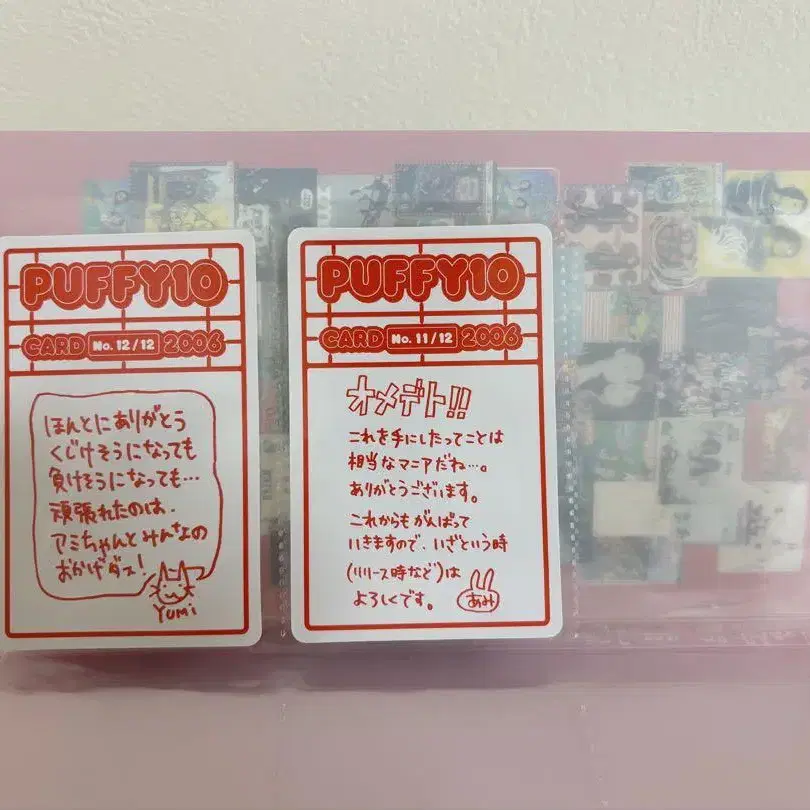 PUFFY10
CARD No. 12/12 2006
ほんとにありがとう
くじけそうになっても
負けそうになっても…
頑張れたのは、
アミちゃんとみんなの
おかげダス!
YUMi
PUFFY10
CARD No. 11/12 2006
オメデト!!
これを手にしたってことは
相当なマニアだね…。
ありがとうございます。
これからもがんばって
いきますので、いざという時
(リリース時など)は
よろしくです。
あみ